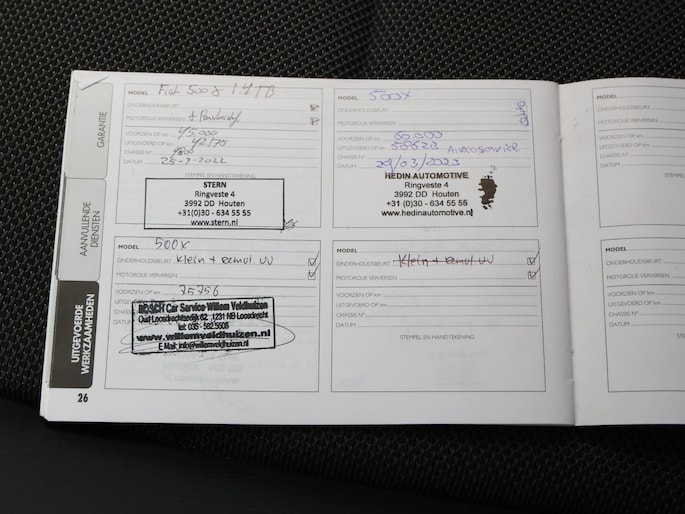 GARANTIE
AANVULLENDE
DIENSTEN
UITGEVOERDE
WERKZAAMHEDEN
26
MODEL Fiat 500x 1.4TB
ONDERHOUDSBEURT
MOTOROLIE VERVERSEN
VOORZIEN OP km 45.000
UITGEVOERD OP km 42175
CHASSIS N°
DATUM 25-7-2022
STEMPEL EN HANDTEKENING
STERN
Ringveste 4
3992 DD Houten
+31(0)30 - 634 55 55
www.stern.nl
MODEL 500X
ONDERHOUDSBEURT
MOTOROLIE VERVERSEN
VOORZIEN OP km 60.000
UITGEVOERD OP km 58623 Aircoservice
CHASSIS N°
DATUM 29/03/2023
STEMPEL EN HANDTEKENING
HEDIN AUTOMOTIVE
Ringveste 4
3992 DD Houten
+31 (0)30 - 634 55 55
www.hedinautomotive.nl
MODEL 500X
ONDERHOUDSBEURT Klein + remvl. VV
MOTOROLIE VERVERSEN
VOORZIEN OP km 75756
UITGEVOERD
CHASSIS
DATUM
BOSCH Car Service Willem Veldhuizen
Oud Loosdrechtsedijk 62 1231 NB Loosdrecht
tel: 035 - 582.5606
www.willemveldhuizen.nl
E Mail: info@willemveldhuizen.nl
MODEL
ONDERHOUDSBEURT Klein + remvl. VV
MOTOROLIE VERVERSEN
VOORZIEN OP km
UITGEVOERD OP km
CHASSIS N°
DATUM
STEMPEL EN HANDTEKENING
MODEL
ONDERHOUDSB
MOTOROLIE VE
VOORZIEN OP k
UITGEVOERD O
CHASSIS N°
DATUM
MODEL
ONDERHOUDSB
MOTOROLIE VE
VOORZIEN OP
UITGEVOERD
CHASSIS N°
DATUM